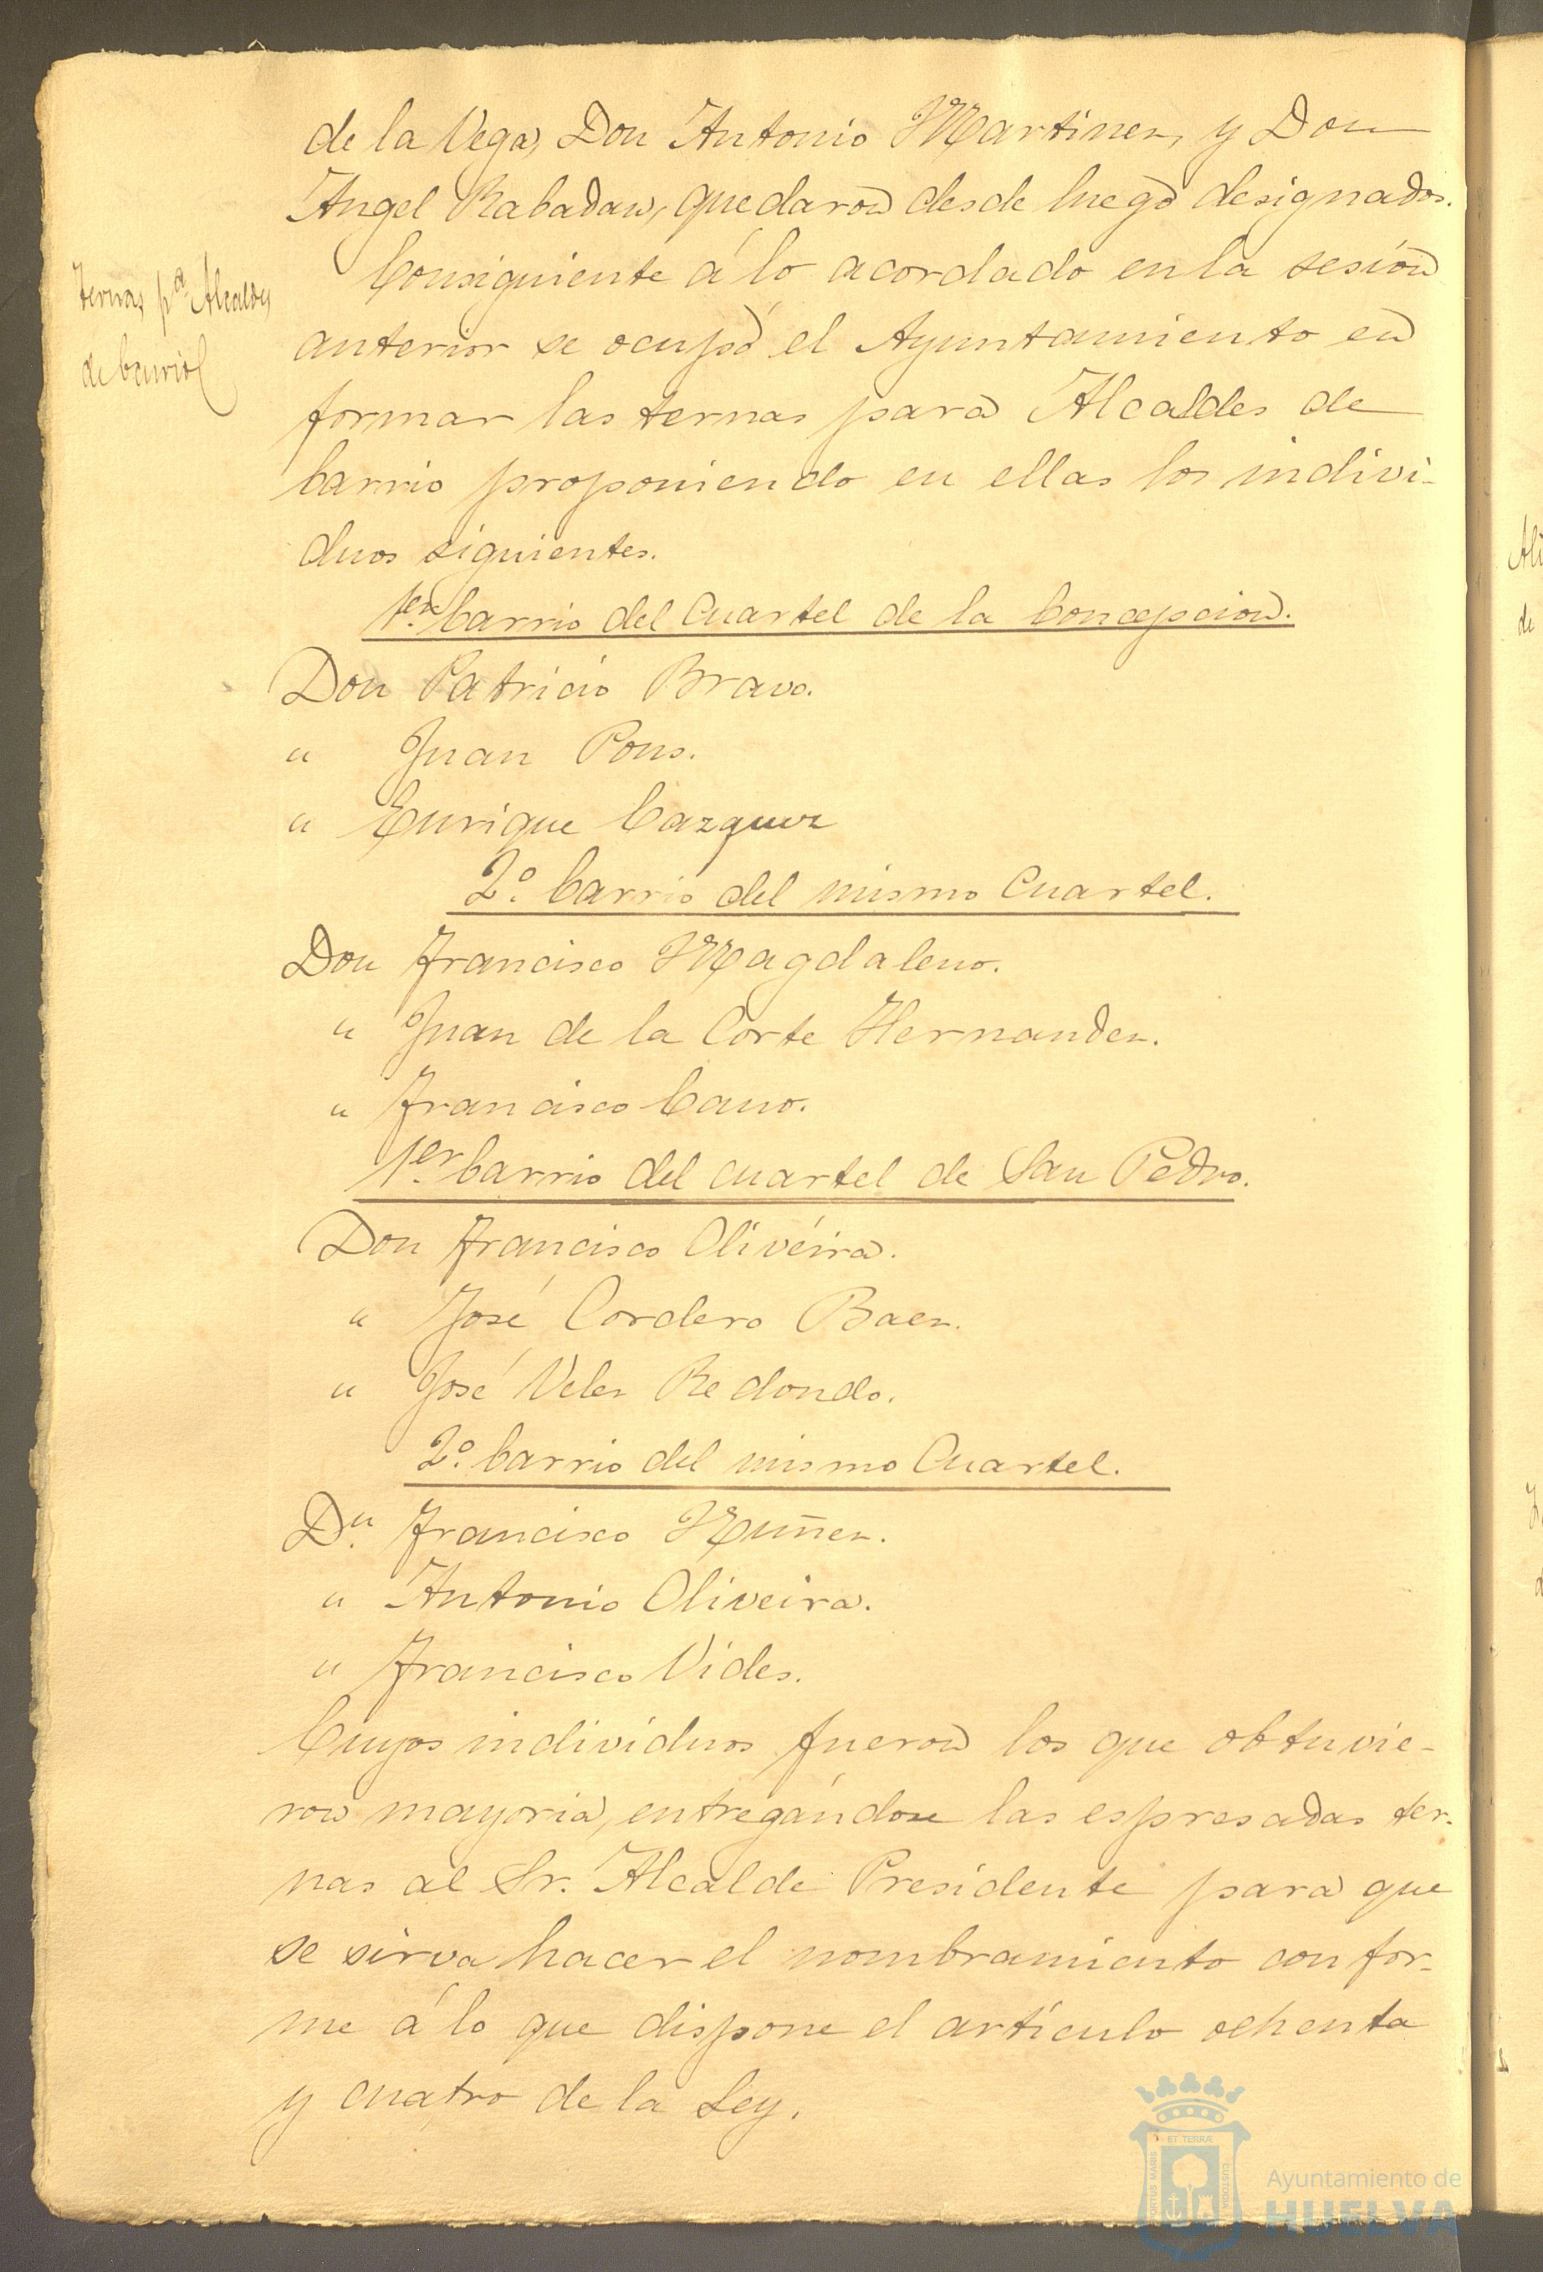 de la Vega, Don Antonio Martinez, y Don
Angel Rabadan, quedaron desde luego designados.
Ternas pª Alcaldes
de barrio
Consiguiente á lo acordado en la sesión
anterior se ocupó el Ayuntamiento en
formar las ternas para Alcaldes de
barrio proponiendo en ellas los indivi-
duos siguientes.
1er barrio del Cuartel de la Concepcion.
Don Patricio Bravo.
" Juan Pons.
" Enrique Cazquez
2º barrio del mismo Cuartel.
Don Francisco Magdaleno.
" Juan de la Corte Hernandez.
" Francisco Cano.
1er barrio del cuartel de San Pedro.
Don Francisco Oliveira.
" José Cordero Baez.
" José Velez Redondo.
2º barrio del mismo Cuartel.
Dn Francisco Nuñez.
" Antonio Oliveira.
" Francisco Vides.
Cuyos individuos fueron los que obtuvie-
ron mayoria, entregándose las espresadas ter-
nas al Sr. Alcalde Presidente para que
se sirva hacer el nombramiento confor-
me á lo que dispone el artículo ochenta
y cuatro de la Ley.
PORTUS MARIS ET TERRÆ CUSTODIA
Ayuntamiento de
HUELVA